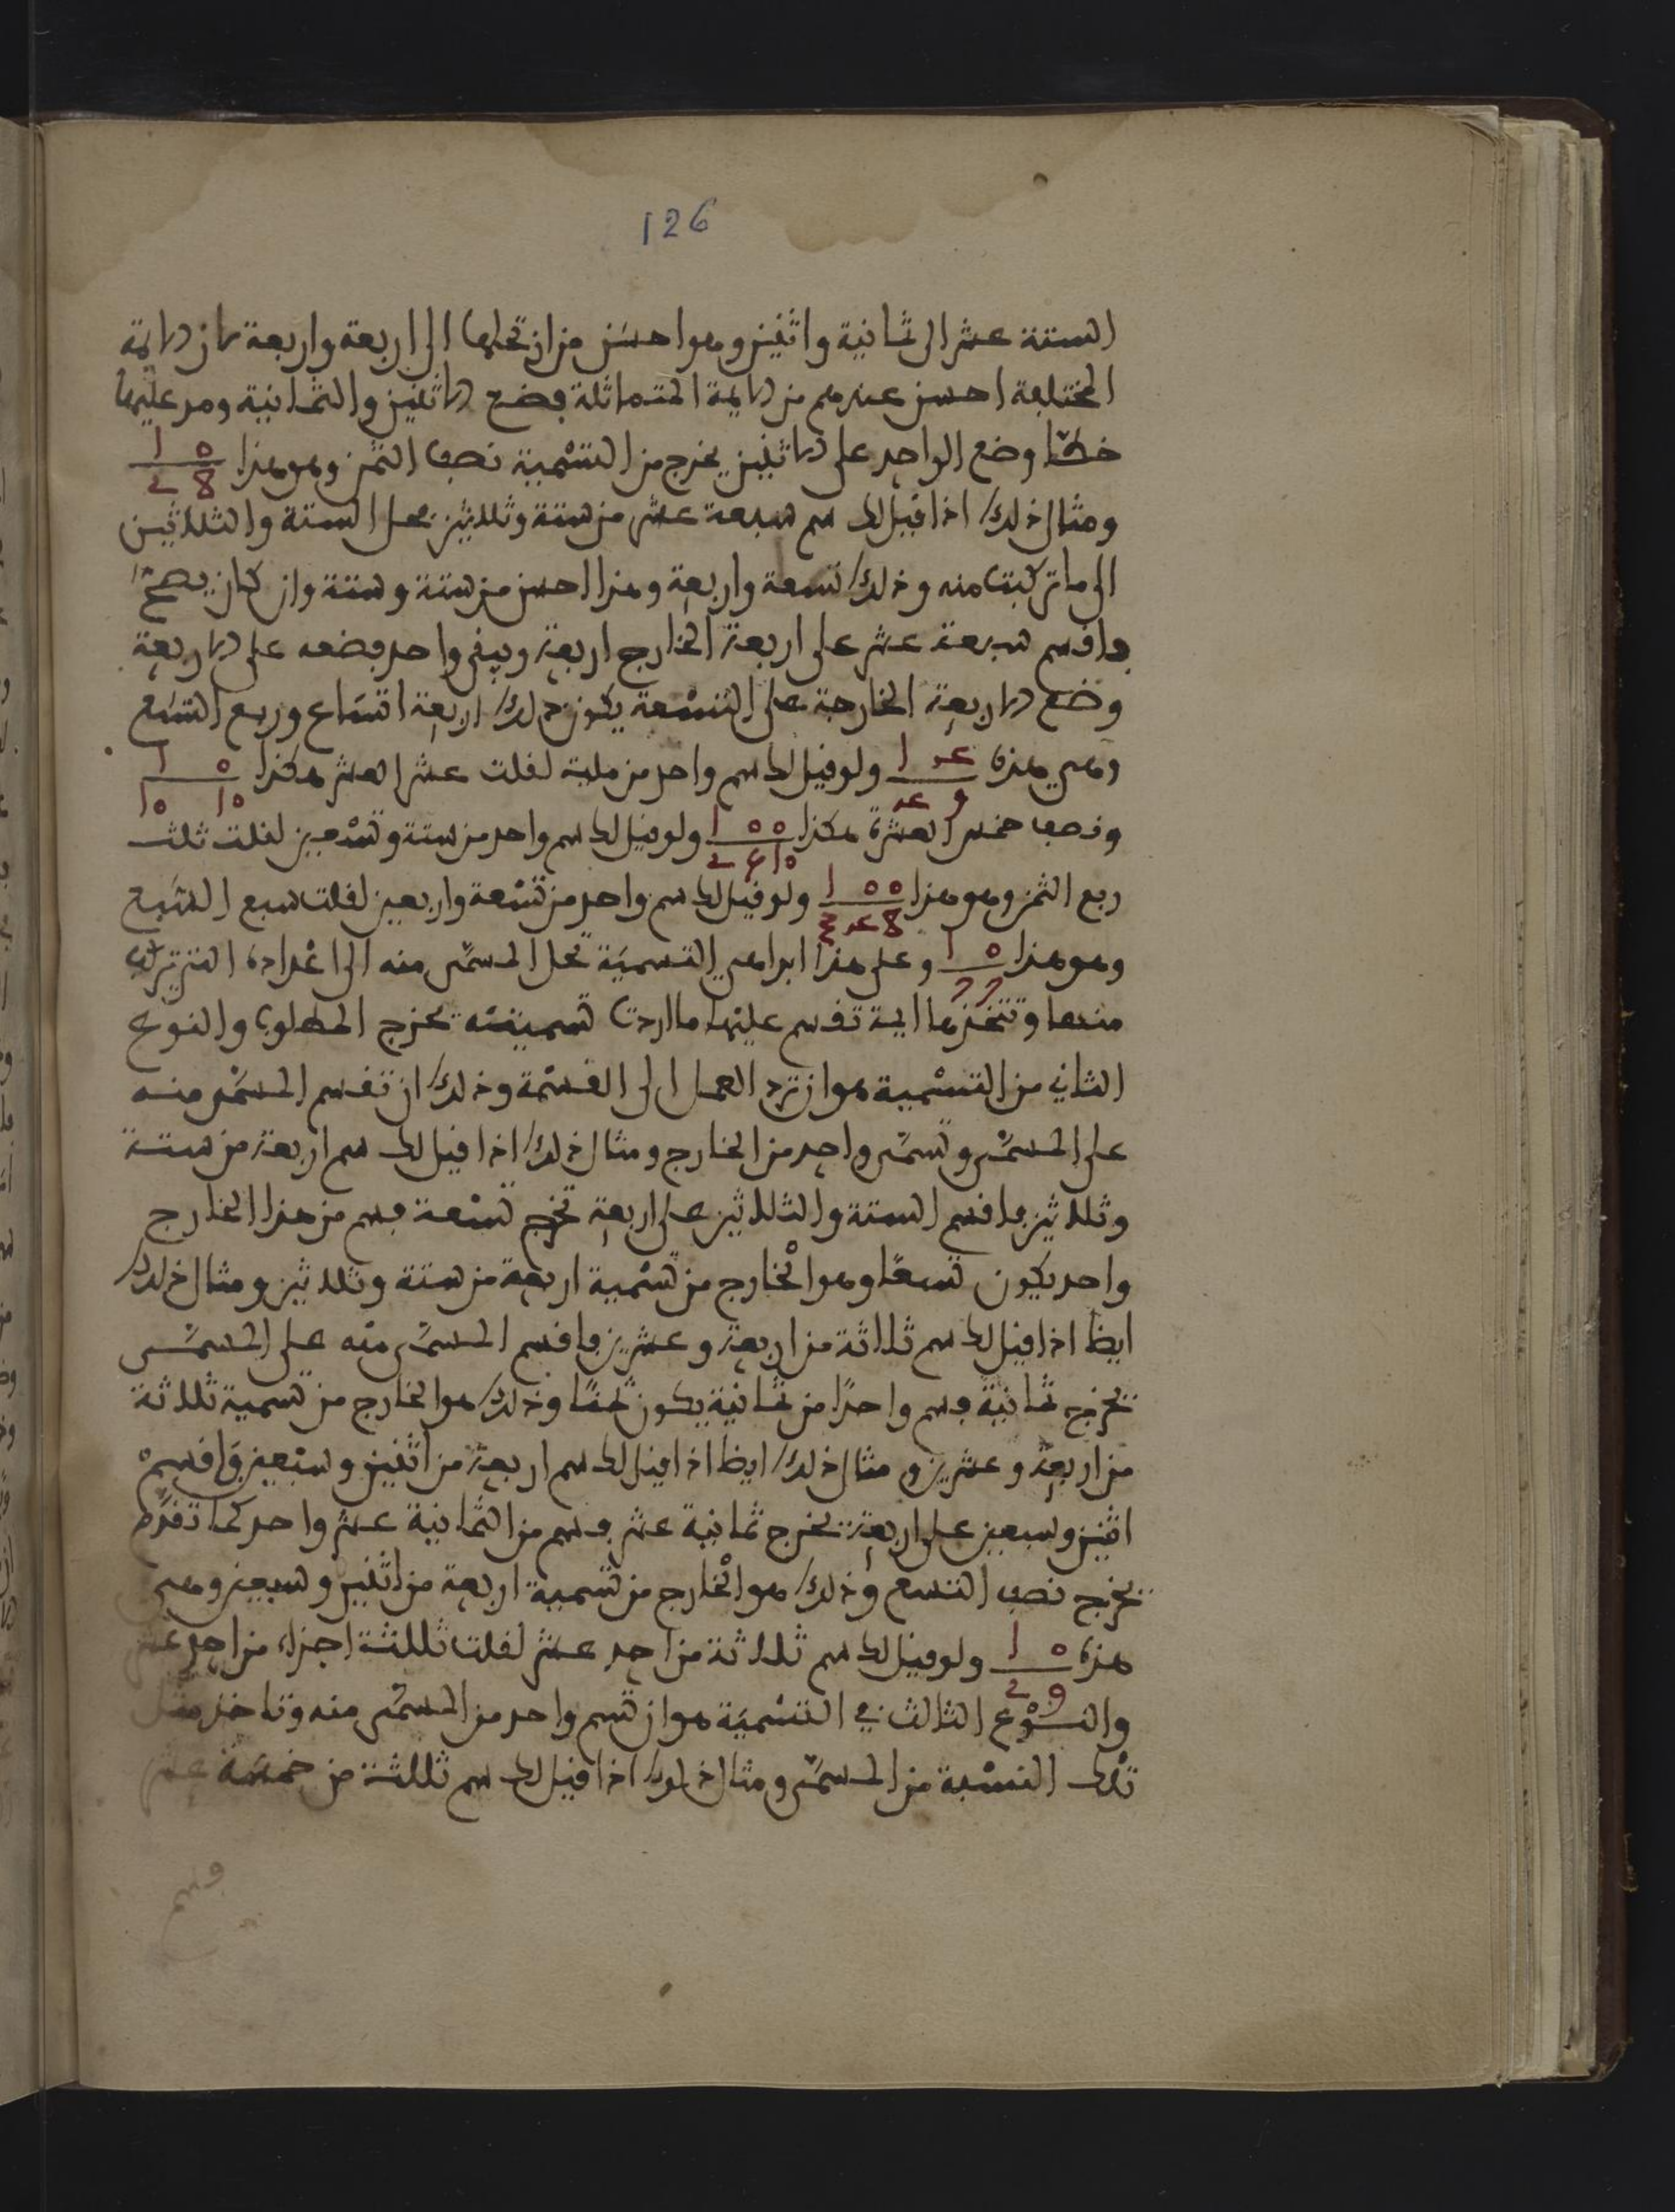 126
الستة عشر الى ثمانية واثنين وهو احسن من ان تحلها الى اربعة واربعة لان الايمة
المختلفة احسن عندهم من الايمة المتماثلة فضع الاثنين والثمانية ومد عليهما
خطا وضع الواحد على الاثنين يخرج من التسمية نصف الثمن وهو هذا 0 1 / 8 2
ومثال ذلك اذا قيل لك سم سبعة عشر من ستة وثلاثين فحل الستة والثلاثين
الى ما تركبت منه وذلك تسعة واربعة وهذا احسن من ستة وستة وان كان يصح
فاقسم سبعة عشر على اربعة الخارج اربعة ويبقى واحد فضعه على الاربعة
وضع الاربعة الخارجة على التسعة يكون ذلك اربعة اتساع وربع التسع
وهي هذه 4 1 / 9 4 ولو قيل لك سم واحد من ماية لقلت عشر العشر هكذا 0 1 / 10 10
ونصف خمس العشر هكذا 0 0 1 / 10 5 2 ولو قيل لك سم واحد من ستة وتسعين لقلت ثلث
ربع الثمن وهو هذا 0 0 1 / 8 4 3 ولو قيل لك سم واحد من تسعة واربعين لقلت سبع السبع
وهو هذا 0 1 / 7 7 وعلى هذا ابدا هي التسمية تحل المسمى منه الى اعداده التي تركب
منها وتتخذها ايمة تقسم عليها ما اردت تسميته يخرج المطلوب والنوع
الثاني من التسمية هو ان ترد العمل الى القسمة وذلك ان تقسم المسمى منه
على المسمى وتسمى واحد من الخارج ومثال ذلك اذا قيل لك سم اربعة من ستة
وثلاثين فاقسم الستة والثلاثين على اربعة تخرج تسعة فسم من هذا الخارج
واحد يكون تسعا وهو الخارج من تسمية اربعة من ستة وثلاثين ومثال ذلك
ايظا اذا قيل لك سم ثلاثة من اربعة وعشرين فاقسم المسمى منه على المسمى
يخرج ثمانية فسم واحدا من ثمانية يكون ثمنا وذلك هو الخارج من تسمية ثلاثة
من اربعة وعشرين ومثال ذلك ايظا اذا قيل لك سم اربعة من اثنين وسبعين فاقسم
اثنين وسبعين على اربعة يخرج ثمانية عشر فسم من الثمانية عشر واحد كما تقدم
يخرج نصف التسع وذلك هو الخارج من تسمية اربعة من اثنين وسبعين وهي
هذه 0 1 / 9 2 ولو قيل لك سم ثلاثة من احد عشر لقلت ثلاثة اجزاء من احد عشر
والنوع الثالث في التسمية هو ان تسم واحد من المسمى منه وتاخذ مثل
تلك النسبة من المسمى ومثال ذلك اذا قيل لك سم ثلاثة من خمسة عشر
فسم